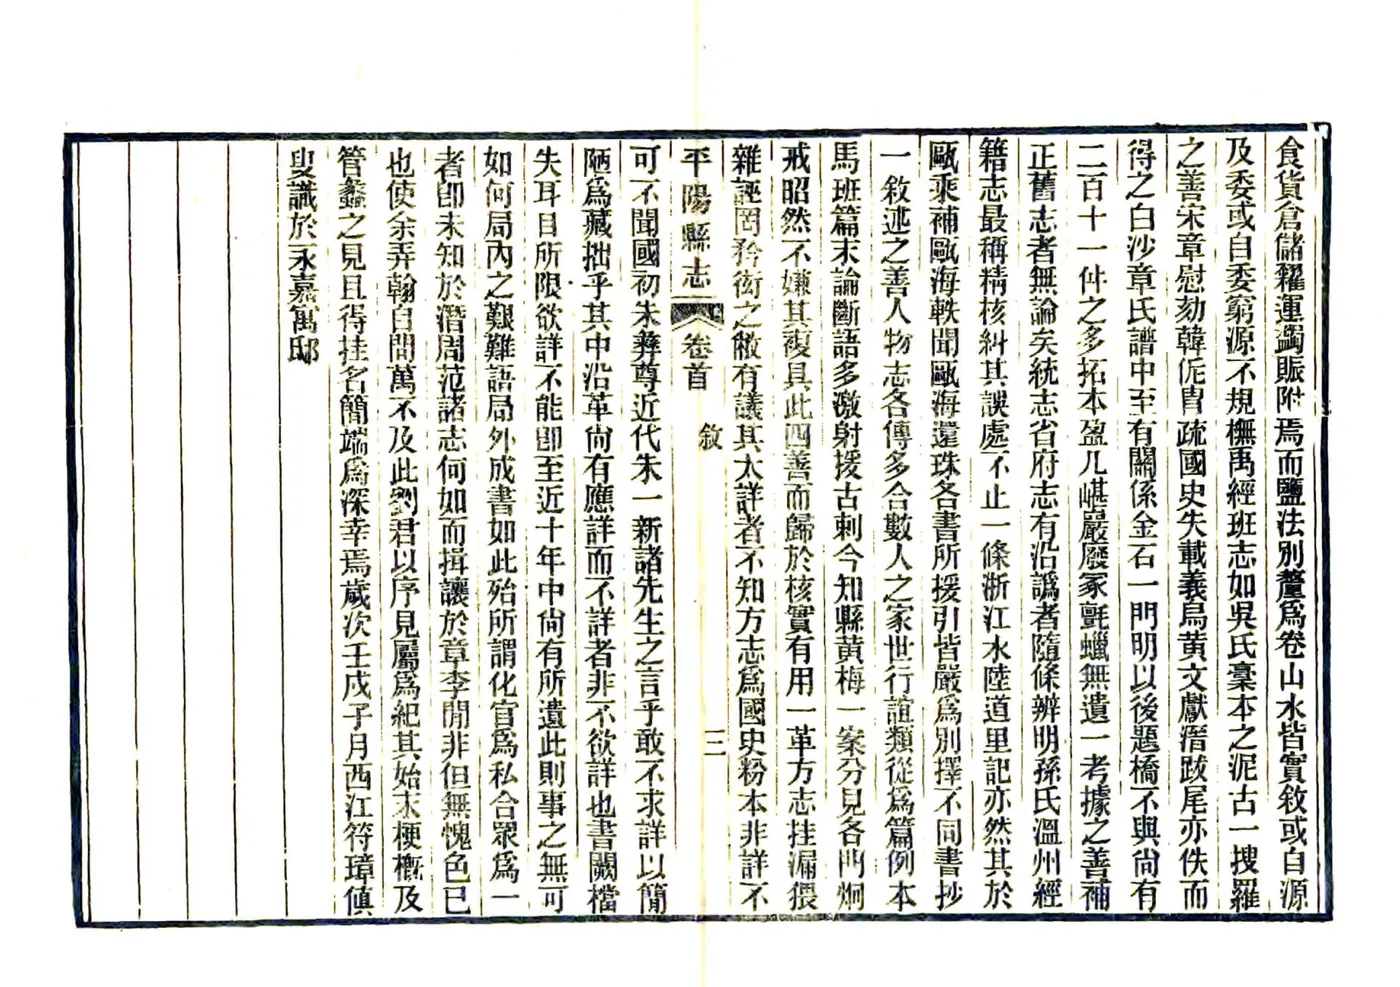 食貨倉儲糴運蠲賑附焉而鹽法別釐爲卷山水皆實敘或自源
及委或自委窮源不規橅禹經班志如吳氏稾本之泥古一搜羅
之善宋章慰劾韓侂冑疏國史失載義烏黄文獻溍跋尾亦佚而
得之白沙章氏譜中至有關係金石一門明以後題橋不與尙有
二百十一件之多拓本盈几嵁巖廢冢氈蠟無遺一考據之善補
正舊志者無論矣統志省府志有沿譌者隨條辨明孫氏溫州經
籍志最稱精核糾其誤處不止一條浙江水陸道里記亦然其於
甌乘補甌海軼聞甌海還珠各書所援引皆嚴爲別擇不同書抄
一敘述之善人物志各傳多合數人之家世行誼類從爲篇例本
馬班篇末論斷語多激射援古刺今知縣黄梅一案分見各門炯
戒昭然不嫌其複具此四善而歸於核實有用一革方志挂漏猥
雜誣罔矜衒之敝有議其太詳者不知方志爲國史粉本非詳不
平陽縣志 卷首 敘 三
可不聞國初朱彝尊近代朱一新諸先生之言乎敢不求詳以簡
陋爲藏拙乎其中沿革尙有應詳而不詳者非不欲詳也書闕檔
失耳目所限欲詳不能卽至近十年中尙有所遺此則事之無可
如何局內之艱難語局外成書如此殆所謂化官爲私合眾爲一
者卽未知於潛周范諸志何如而揖讓於章李閒非但無愧色已
也使余弄翰自問萬不及此劉君以序見屬爲紀其始末梗槪及
管蠡之見且得挂名簡端爲深幸焉歲次壬戌子月西江符璋傎
叟識於永嘉寓邸